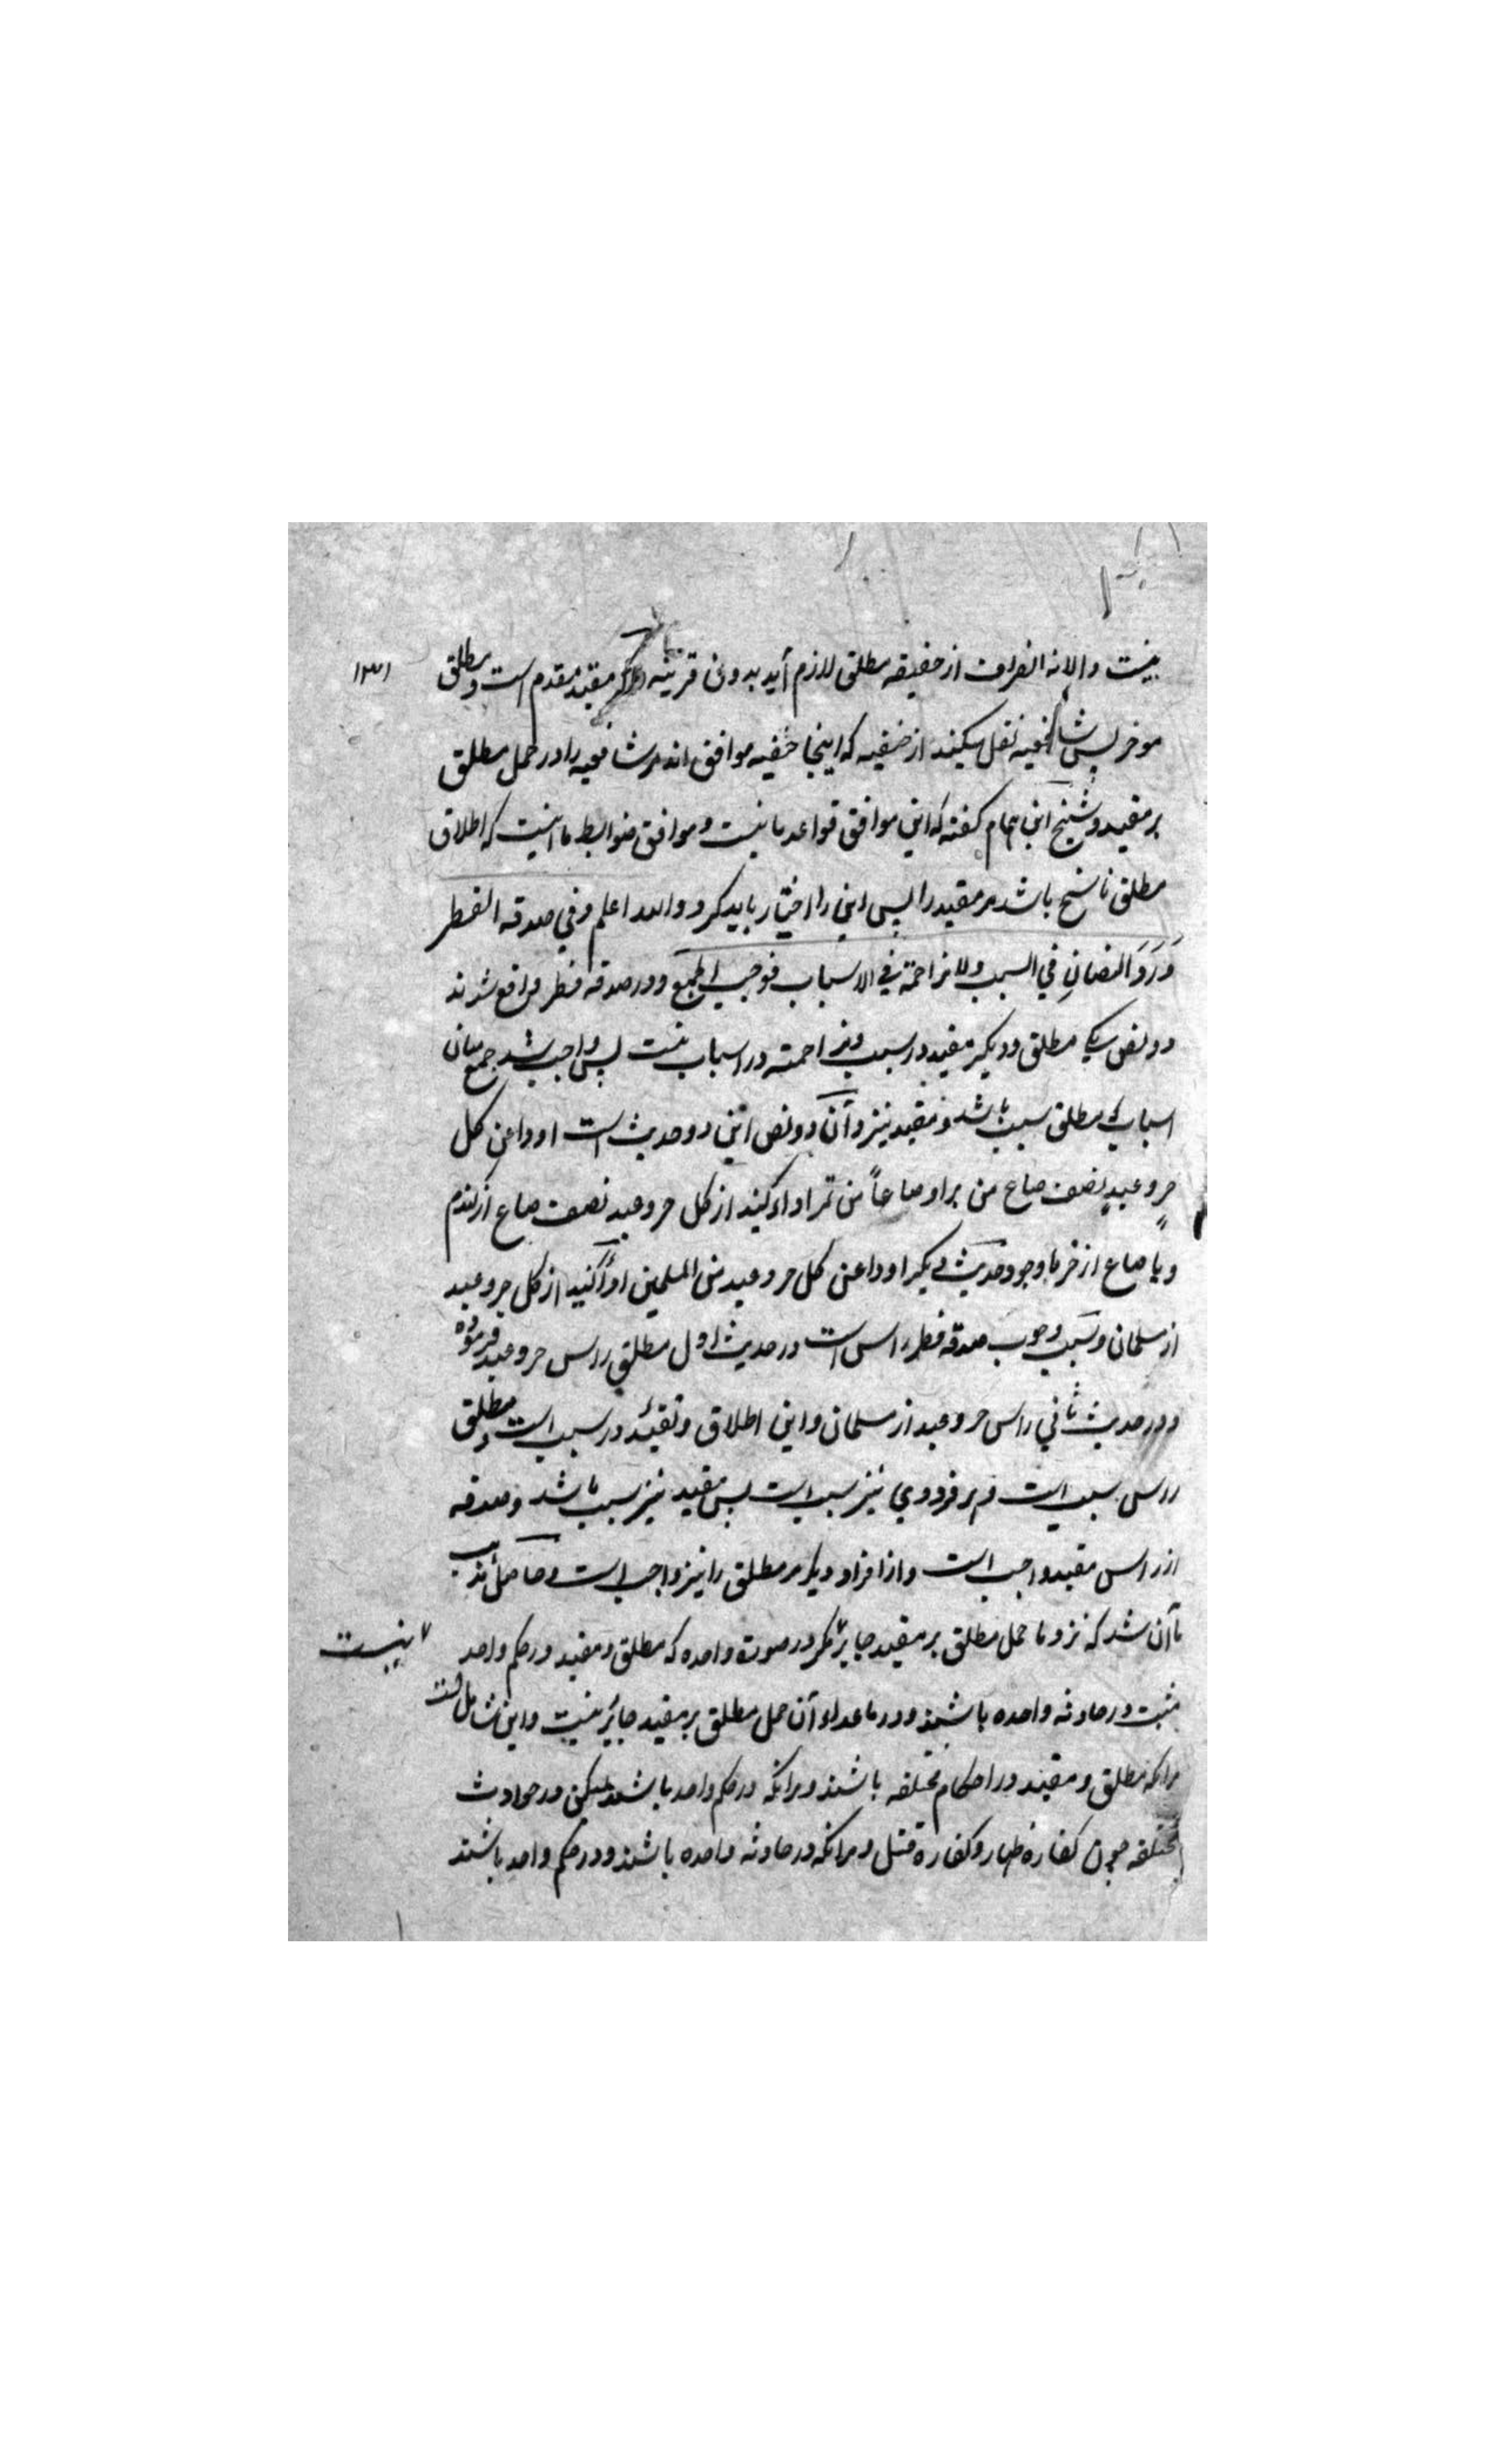 نیست والا نه انصراف از حقیقه مطلق لازم آید بدون قرینه و اگر مقید مقدم است و مطلق
موخر پس شافعیه نقل میکنند از حنفیه که اینجا حنفیه موافق اند مر شافعیه را در حمل مطلق
بر مقید و شیخ ابن همام گفته که این موافق قواعد ما نیست و موافق ضوابط ما اینست که اطلاق
مطلق ناسخ باشد مر مقید را پس این را اختیار باید کرد والله اعلم وفي صدقه الفطر
وَرَدَ النصانِ في السبب ولا مزاحمة في الاسباب فوجب الجمع و در صدقه فطر واقع شدند
دو نص یکی مطلق و دیگر مقید در سبب و مزاحمته در اسباب نیست پس واجب شد جمع میان
اسباب مطلق سبب باشد و مقید نیز و آن دو نص این دو حدیث است ادوا عن کل
حر وعبدٍ نصف صاع من بر او صاعاً من تمر اداء کنید از کل حر و عبد نصف صاع از گندم
و یا صاع از خرما و وجود حدیث دیگر ادوا عن کل حر وعبد من المسلمین ادا کنید از کل حر و عبد
از مسلمانان و سبب وجوب صدقه فطر راس است در حدیث اول مطلق راس حر و عبد فرموده
و در حدیث ثانی راس حر و عبد از مسلمانان و این اطلاق و تقیید در سبب است و مطلق
راس سبب است و هر فرد وی نیز سبب است پس مقید نیز سبب باشد و صدقه
از راس مقید واجب است و از افراد دیگر مر مطلق را نیز واجب است و حاصل مذهب
ما آن شد که نزد ما حمل مطلق بر مقید جایز مگر در صورة واحده که مطلق و مقید در حکم واحد
نیست
مثبت در حادثه واحده باشند و در ما عداء آن حمل مطلق بر مقید جایز نیست و این شامل است
مر آنکه مطلق و مقید در احکام مختلفه باشند و مر آنکه در حکم واحد باشند لیکن در حوادث
مختلفه چون کفاره ظهار و کفاره قتل و مر آنکه در حادثه واحده باشند و در حکم واحد باشند